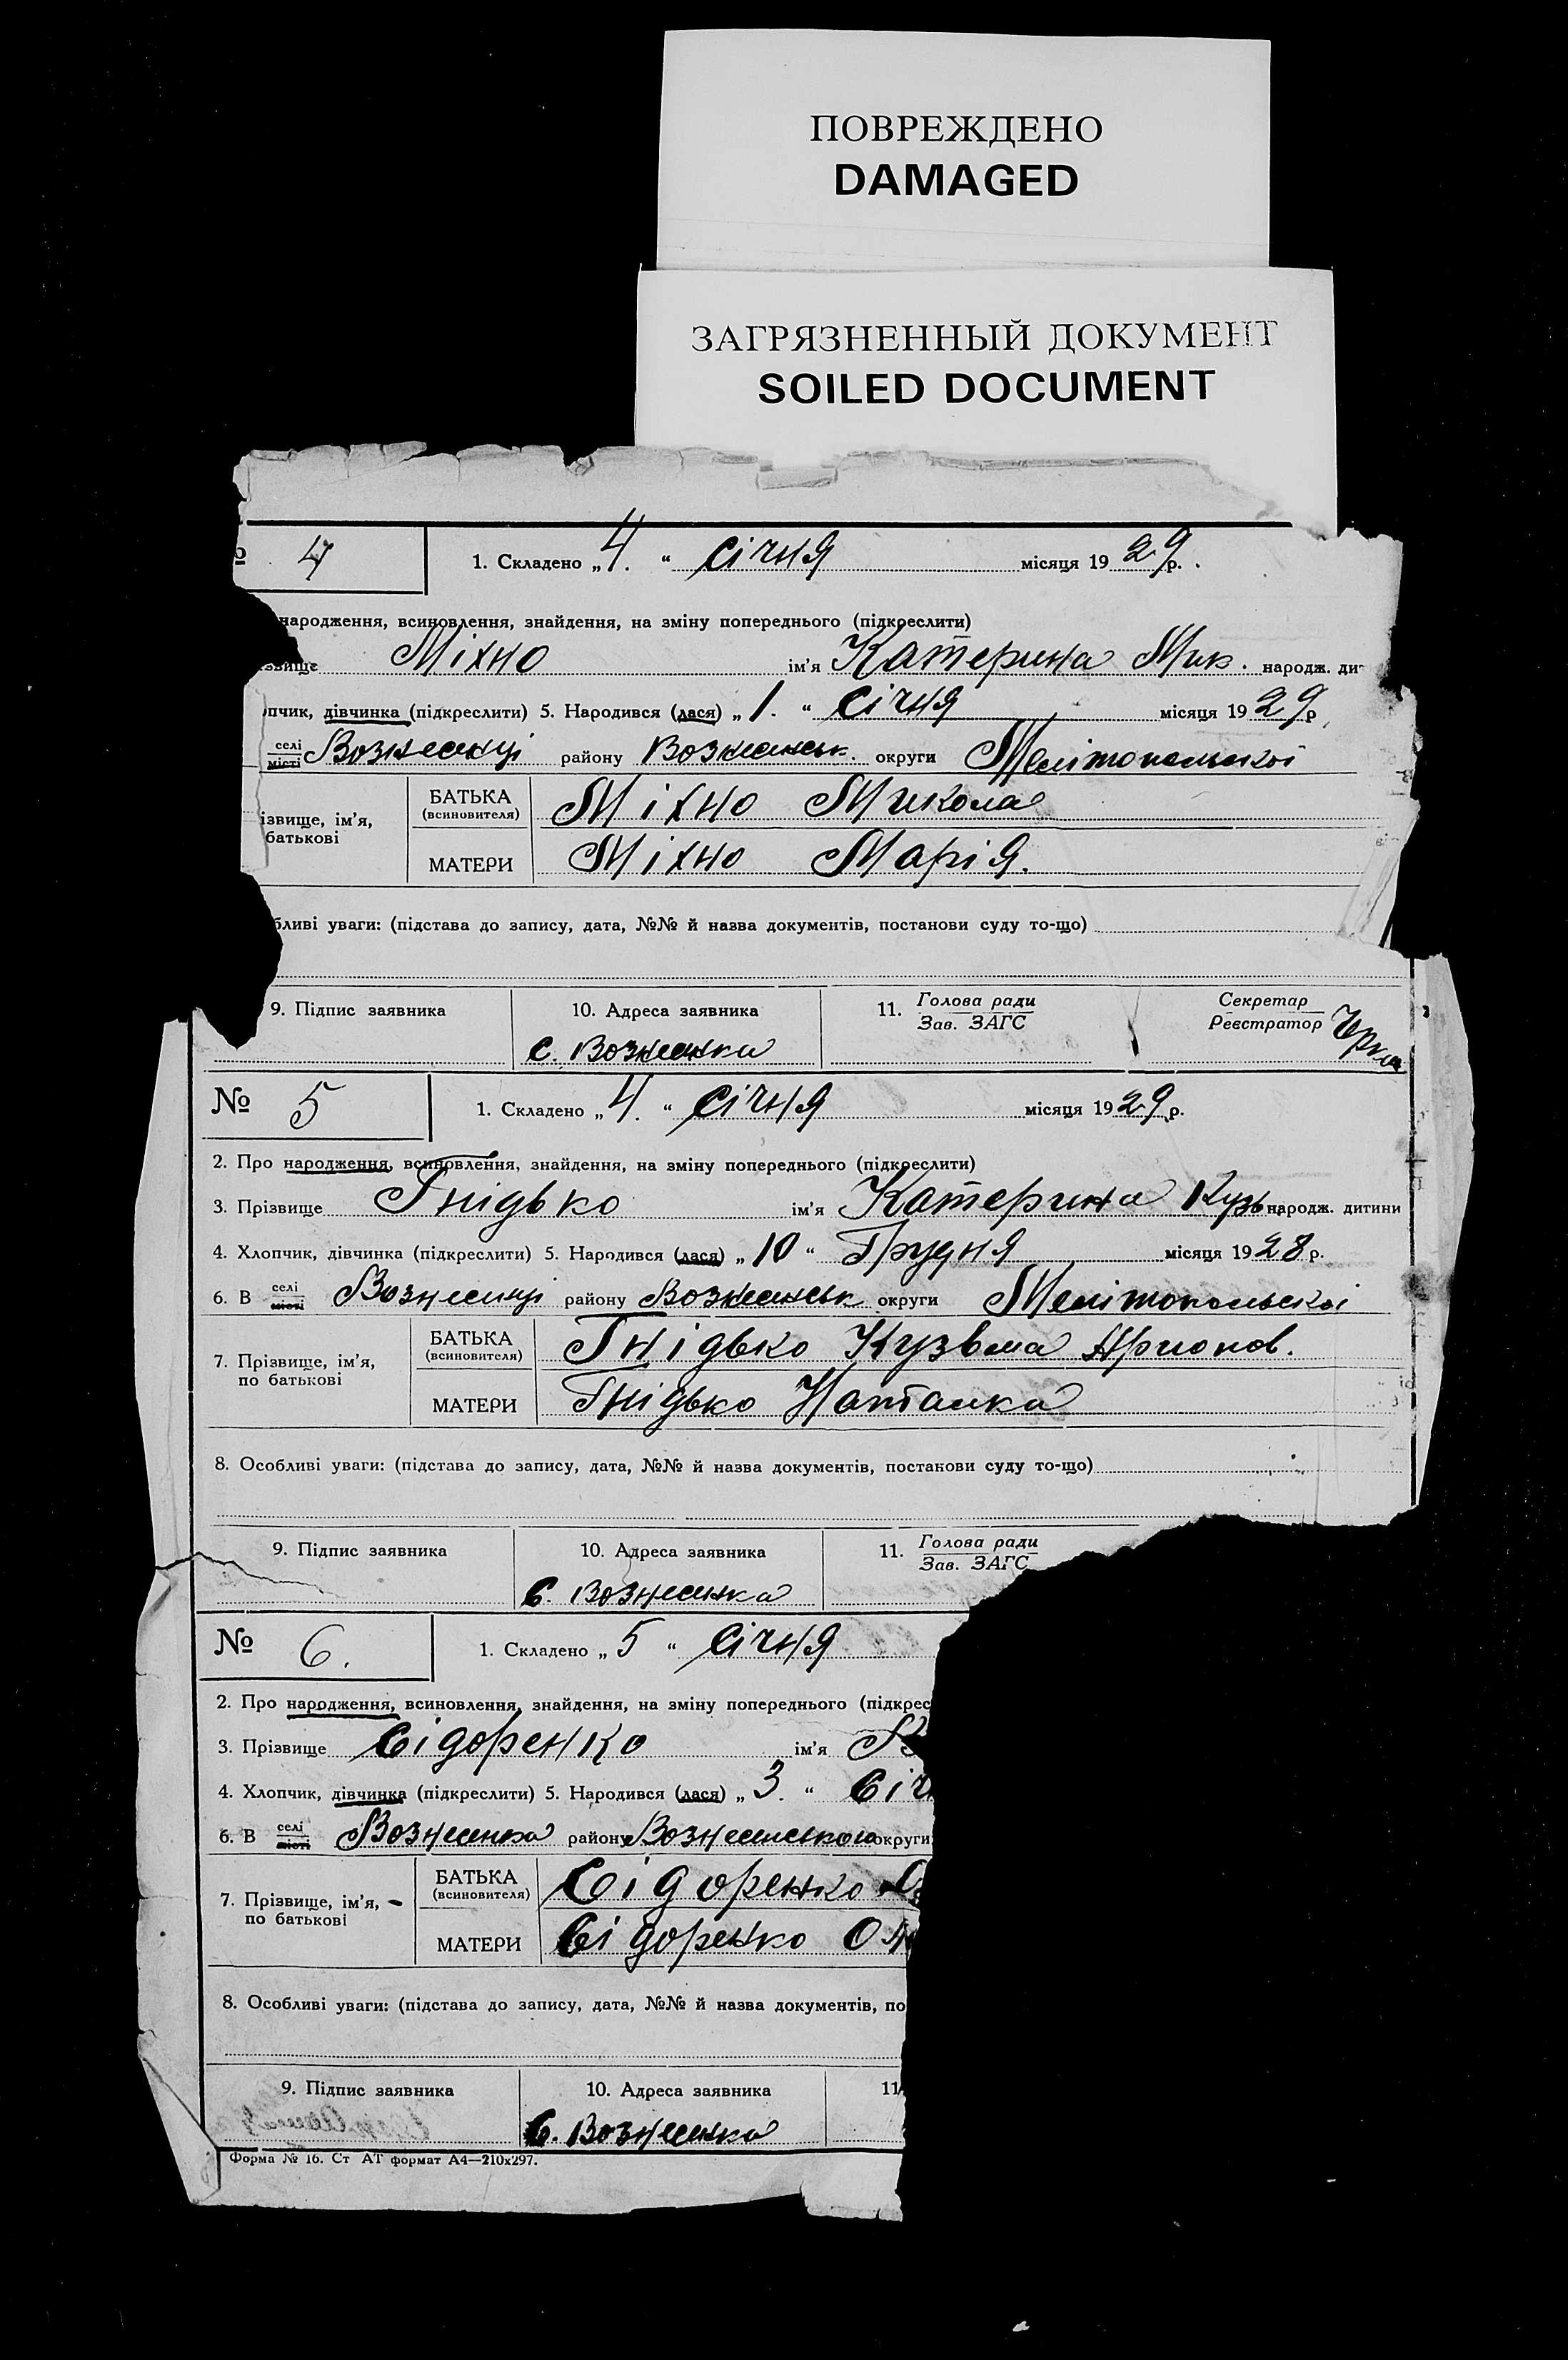 ПОВРЕЖДЕНО
DAMAGED
ЗАГРЯЗНЕННЫЙ ДОКУМЕНТ
SOILED DOCUMENT
4 1. Складено „ 4. “ січня місяця 19 29 р.
народження, всиновлення, знайдення, на зміну попереднього (підкреслити)
звище Міхно ім'я Катерина Мик. народж. ди
пчик, дівчинка (підкреслити) 5. Народився (лася) „ 1. “ січня місяця 19 29 р
селі місті Вознесенці району Вознесенськ. округи Мелітопольскої
ізвище, ім'я, батькові
БАТЬКА (всиновителя) Міхно Микола
МАТЕРИ Міхно Марія.
бливі уваги: (підстава до запису, дата, №№ й назва документів, постанови суду то-що)
9. Підпис заявника 10. Адреса заявника 11. Голова ради Зав. ЗАГС Секретар Реєстратор
с. Вознесенка
№ 5 1. Складено „ 4. “ січня місяця 19 29 р.
2. Про народження, всиновлення, знайдення, на зміну попереднього (підкреслити)
3. Прізвище Гнідько ім'я Катерина Кузь народж. дитини
4. Хлопчик, дівчинка (підкреслити) 5. Народився (лася) „ 10 “ Грудня місяця 19 28 р.
6. В селі місті Вознесенці району Вознесенськ округи Мелітопольскої
7. Прізвище, ім'я, по батькові
БАТЬКА (всиновителя) Гнідько Кузьма
МАТЕРИ Гнідько Наталка
8. Особливі уваги: (підстава до запису, дата, №№ й назва документів, постанови суду то-що)
9. Підпис заявника 10. Адреса заявника 11. Голова ради Зав. ЗАГС
С. Вознесенка
№ 6. 1. Складено „ 5 “ січня
2. Про народження, всиновлення, знайдення, на зміну попереднього (підкрес
3. Прізвище Сідоренко ім'я
4. Хлопчик, дівчинка (підкреслити) 5. Народився (лася) „ 3. “ Січ
6. В селі місті Вознесенка району Вознесенського округи
7. Прізвище, ім'я, по батькові
БАТЬКА (всиновителя) Сідоренко
МАТЕРИ Сідоренко
8. Особливі уваги: (підстава до запису, дата, №№ й назва документів, по
9. Підпис заявника 10. Адреса заявника 11
С. Вознесенка
Форма № 16. Ст АТ формат А4—210х297.